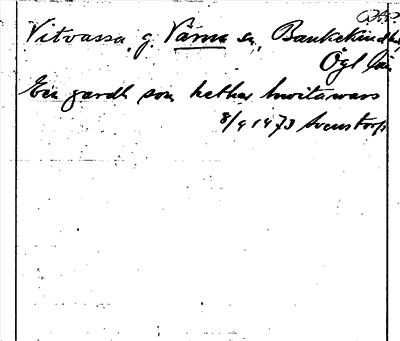 D.A.P.
Vitvassa, g. Vårna sn, Bankekinds hd,
Ögl län
En gardh som hether hwitawars
8/9 1473 Svenstorp